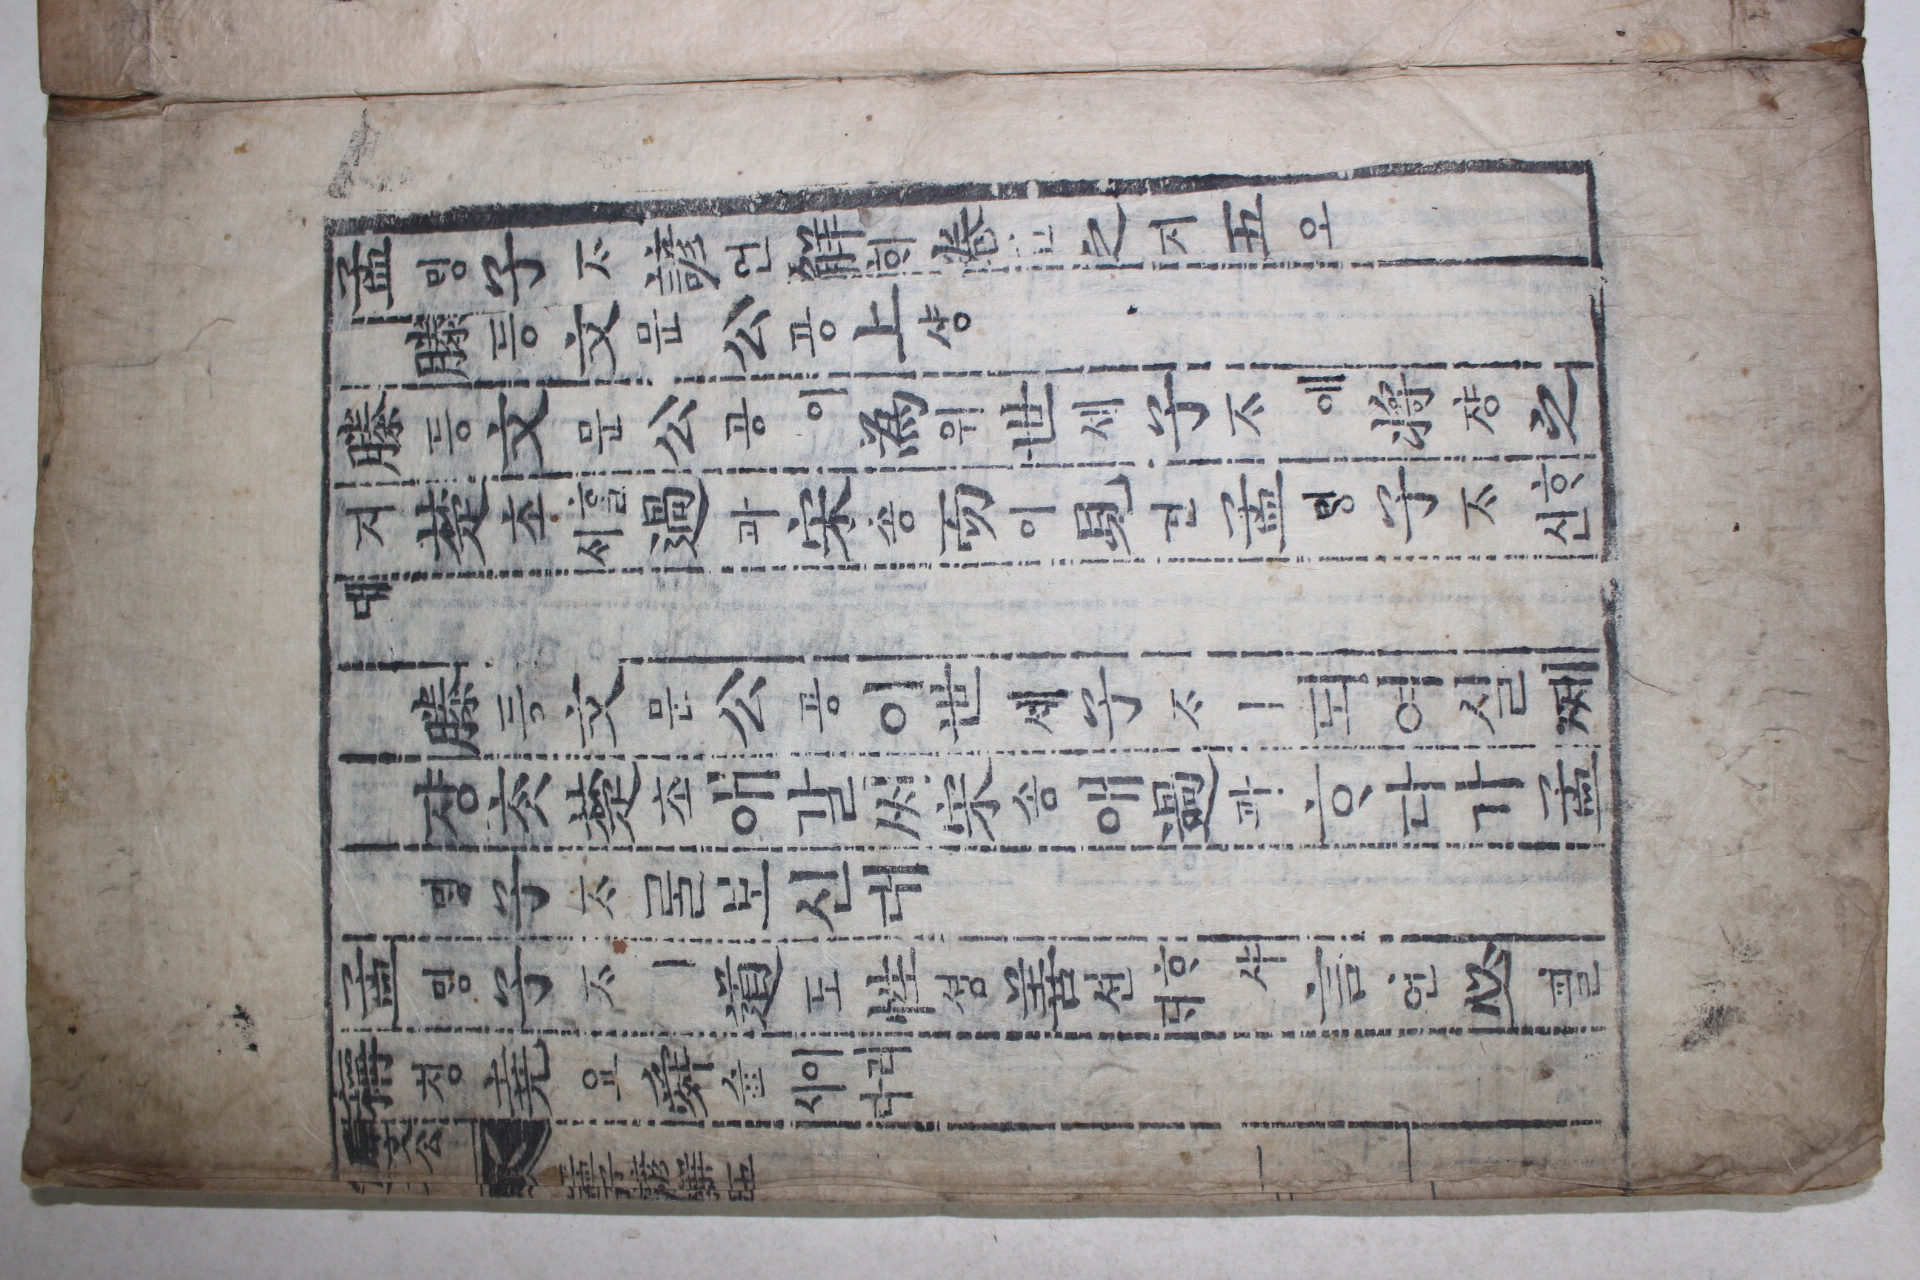 孟ᄆᆡᆼ子ᄌᆞ諺언解ᄒᆡ卷권之지五오
滕등文문公공上샹
滕등文문公공이為위世셰子ᄌᆞ에將쟝之
지楚초ᄒᆞᆯᄉᆡ過과宋송而이見견孟ᄆᆡᆼ子ᄌᆞᄒᆞ신
대
滕등文문公공이世셰子ᄌᆞㅣ되여실쩨
쟝ᄎᆞᆺ楚초애갈씨宋송애過과ᄒᆞ다가孟
ᄆᆡᆼ子ᄌᆞᄅᆞᆯ보신대
孟ᄆᆡᆼ子ᄌᆞㅣ道도性셩善션ᄒᆞ샤ᄃᆡ言언必필
稱칭堯요舜슌이리시다
滕文公
孟子諺解五
一